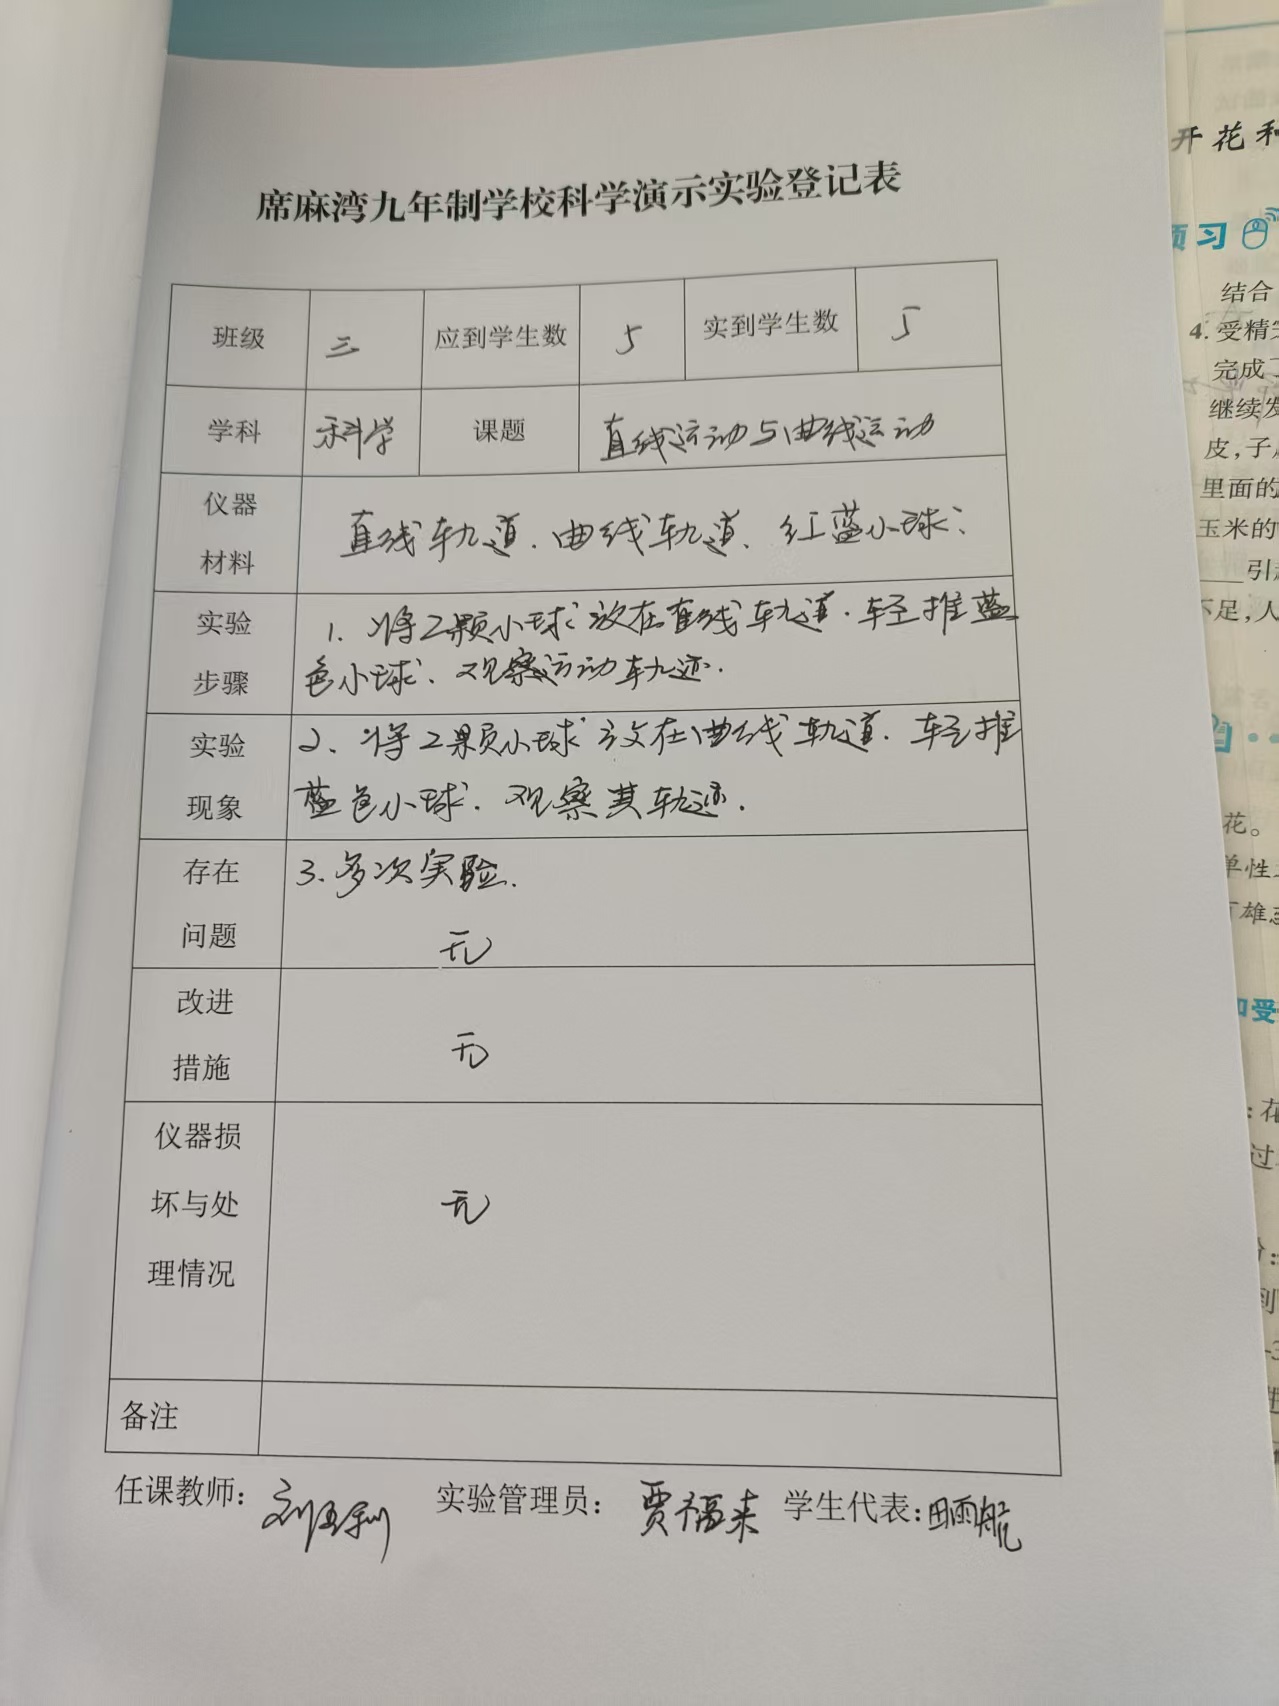 席麻湾九年制学校科学演示实验登记表
班级 三 应到学生数 5 实到学生数 5
学科 科学 课题 直线运动与曲线运动
仪器
材料
直线轨道、曲线轨道、红蓝小球:
实验
步骤
1. 将2颗小球放在直线轨道.轻推蓝
色小球、观察运动轨迹.
实验
现象
2、将2颗小球放在曲线轨道.轻推
蓝色小球.观察其轨迹.
存在
问题
3.多次实验.
无
改进
措施
无
仪器损
坏与处
理情况
无
备注
任课教师: 实验管理员: 贾福来 学生代表:田雨航
开花和
预习
结合
4.受精
完成
继续发
皮,子
里面的
玉米的
引起
不足,人
花。
单性
雄
和受
花
过
到